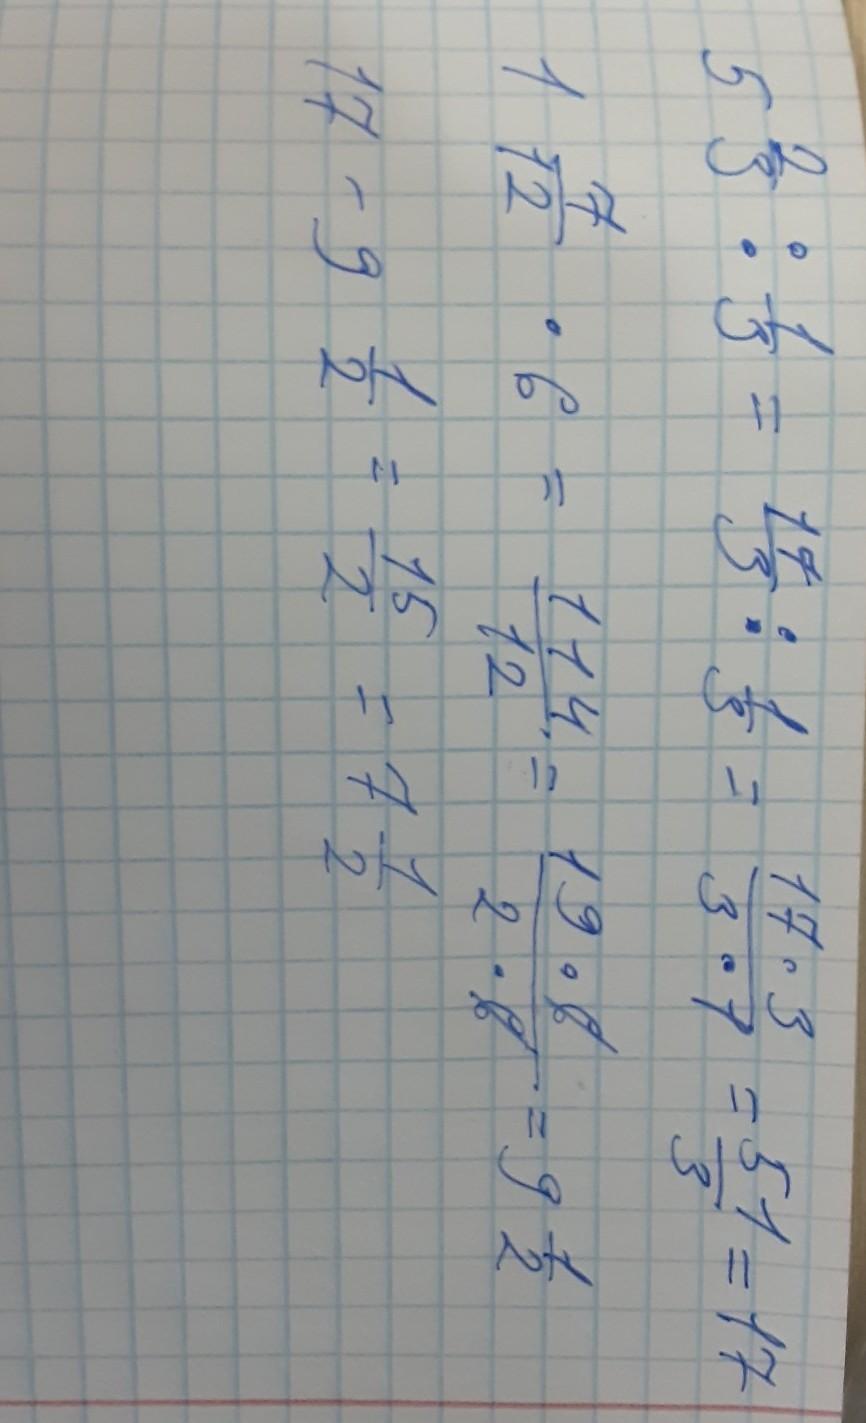 5 2/3 : 1/3 = 17/3 : 1/3 = 17·3/3·1 = 51/3 = 17
1 7/12 · 6 = 114/12 = 19·6/2·6 = 9 1/2
17 - 9 1/2 = 15/2 = 7 1/2